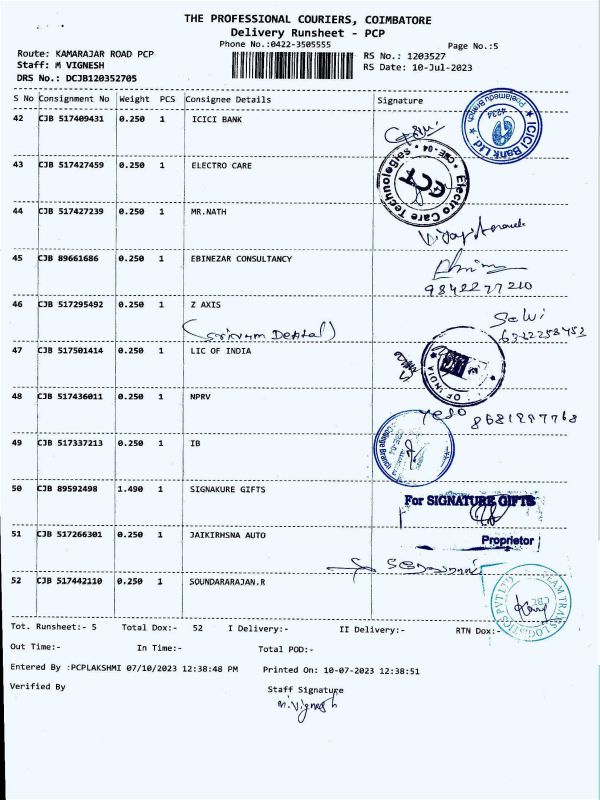 THE PROFESSIONAL COURIERS, COIMBATORE
Delivery Runsheet - PCP
Phone No.:0422-3505555
Page No.:5
Route: KAMARAJAR ROAD PCP
RS No.: 1203527
Staff: M VIGNESH
RS Date: 10-Jul-2023
DRS No.: DCJB120352705
S No Consignment No Weight PCS Consignee Details Signature
42 CJB 517409431 0.250 1 ICICI BANK
ICICI Bank Ltd. Peelamedu Branch 4234
43 CJB 517427459 0.250 1 ELECTRO CARE
Electro Care Technologies ECT CBE - 04
44 CJB 517427239 0.250 1 MR.NATH
45 CJB 89661686 0.250 1 EBINEZAR CONSULTANCY
9842277210
46 CJB 517295492 0.250 1 Z AXIS
Selvi
(Sriram Dental)
47 CJB 517501414 0.250 1 LIC OF INDIA
OF INDIA
48 CJB 517436011 0.250 1 NPRV
49 CJB 517337213 0.250 1 IB
50 CJB 89592498 1.490 1 SIGNAKURE GIFTS
For SIGNATURE GIFTS
51 CJB 517266301 0.250 1 JAIKIRHSNA AUTO
Proprietor
52 CJB 517442110 0.250 1 SOUNDARARAJAN.R
TEAM TRANS LOGISTICS PVT LTD CBE
Tot. Runsheet:- 5 Total Dox:- 52 I Delivery:- II Delivery:- RTN Dox:-
Out Time:- In Time:- Total POD:-
Entered By :PCPLAKSHMI 07/10/2023 12:38:48 PM Printed On: 10-07-2023 12:38:51
Verified By Staff Signature
M. Vignesh